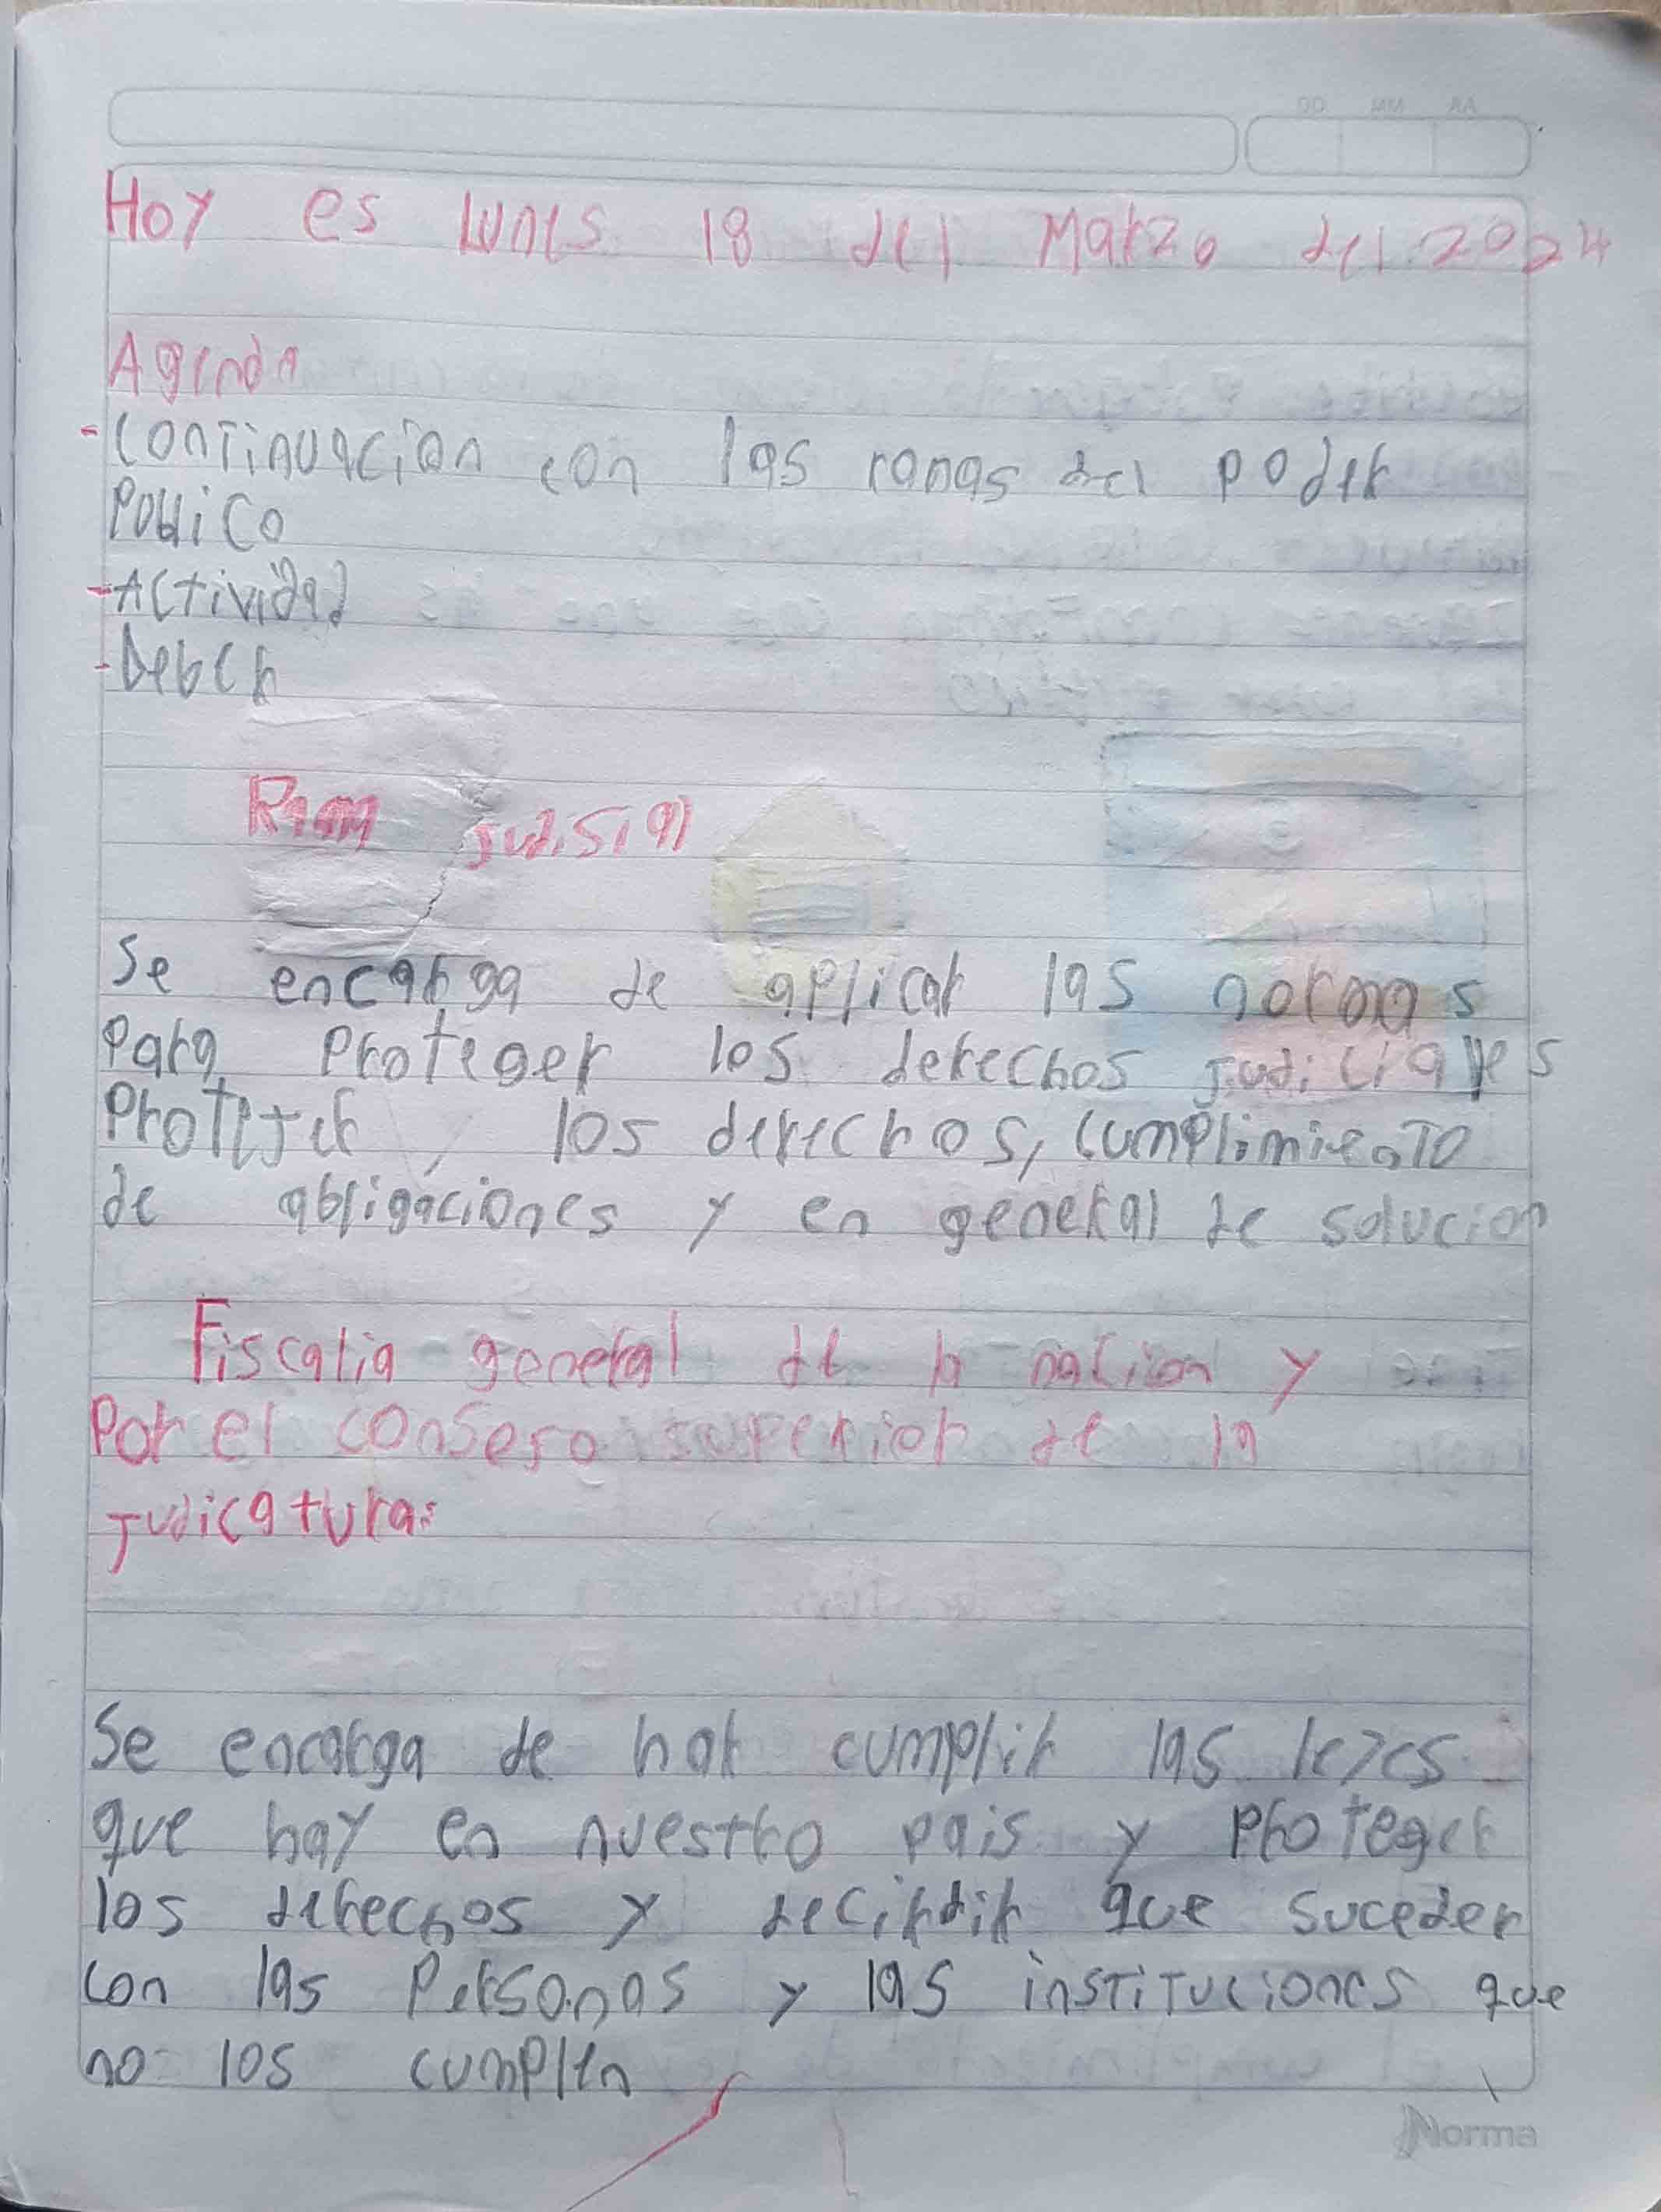 DD MM AA
Hoy es lunes 18 del Marzo del 2024
Agenda
-Continuación con las ramas del poder
Publico
-Actividad
-Deber
Rama Judisial
Se encarga de aplicar las normas
Para Proteger los derechos judiciales
Protejer los derechos, cumplimiento
de obligaciones y en general de solucion
Fiscalia general de la nacion y
Por el consejo superior de la
judicatura:
Se encarga de har cumplir las leyes
que hay en nuestro pais y Proteger
los derechos y decirdir que suceder
con las Personas y las instituciones que
no los cumplen
Norma